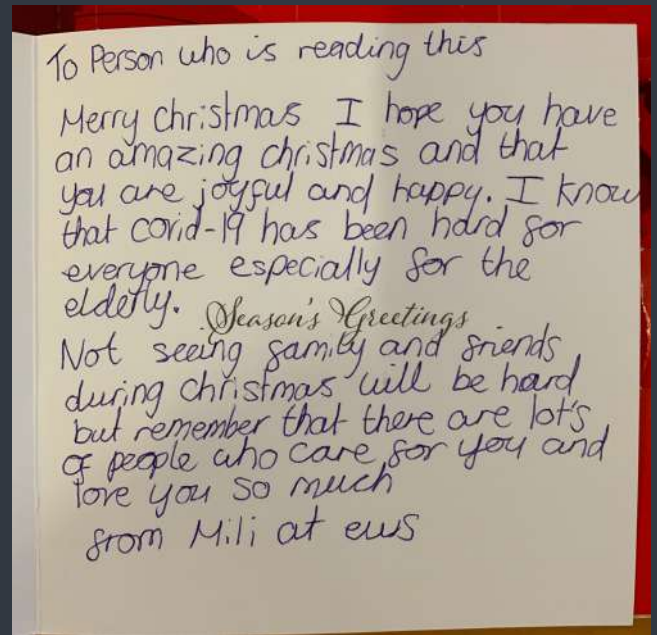 To Person who is reading this
Merry christmas I hope you have
an amazing christmas and that
you are joyful and happy. I know
that covid-19 has been hard for
everyone especially for the
elderly.
Season's Greetings
Not seeing family and friends
during christmas will be hard
but remember that there are lot's
of people who care for you and
love you so much
from Mili at ews